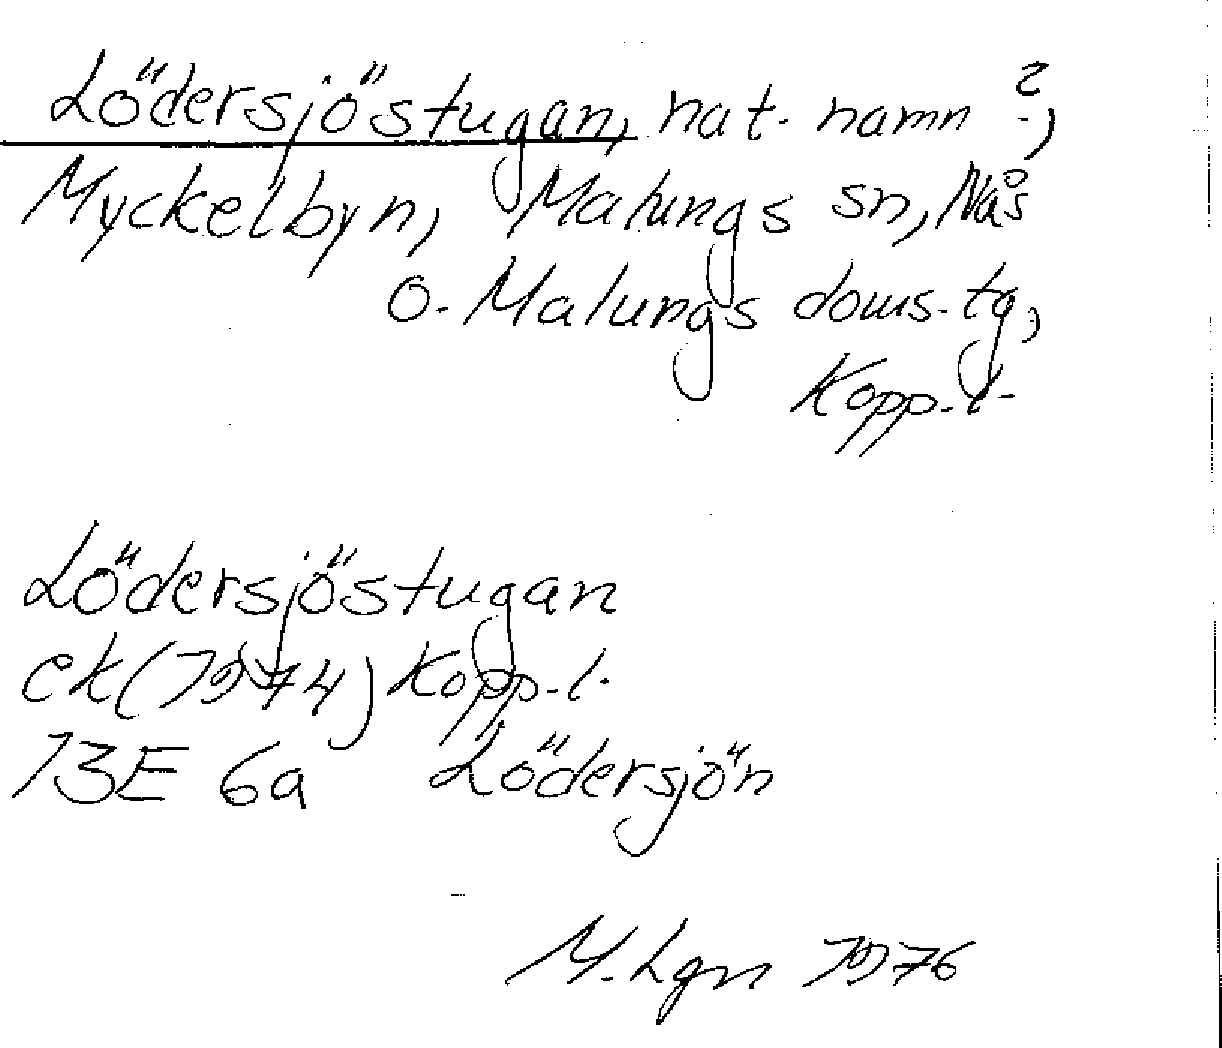 Lödersjöstugan, nat. namn ?,
Myckelbyn, Malungs sn, Nås
o. Malungs doms. tg,
Kopp. l.
Lödersjöstugan
ek (1974) Kopp. l.
13E 6a Lödersjön
M. Lgn 1976